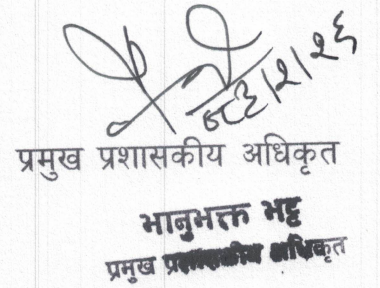 ०८३/२/२६
प्रमुख प्रशासकीय अधिकृत
भानुभक्त भट्ट
प्रमुख प्रशासकीय अधिकृत